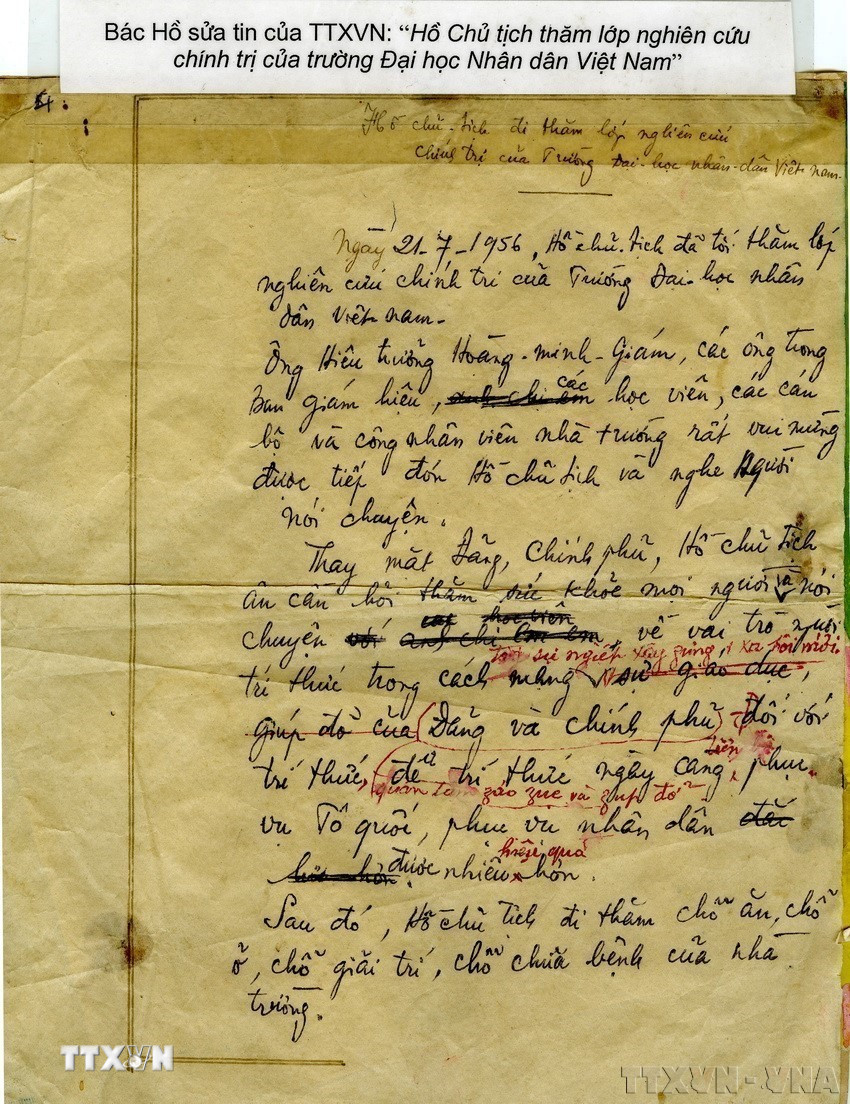 Bác Hồ sửa tin của TTXVN: “Hồ Chủ tịch thăm lớp nghiên cứu
chính trị của trường Đại học Nhân dân Việt Nam”
Hồ chủ-tịch đi thăm lớp nghiên cứu
chính trị của Trường Đại-học nhân-dân Việt-nam-
Ngày 21-7-1956, Hồ chủ-tịch đã tới thăm lớp
nghiên cứu chính trị của Trường Đại-học nhân
dân Việt-nam-
Ông Hiệu trưởng Hoàng-minh-Giám, các ông trong
các
ban giám hiệu, anh chị em học viên, các cán
bộ và công nhân viên nhà trường rất vui mừng
được tiếp đón Hồ chủ tịch và nghe Người
nói chuyện.
Thay mặt Đảng, Chính phủ, Hồ chủ tịch
ân cần hỏi thăm sức khỏe mọi người và nói
các học viên
chuyện với anh chị em, về vai trò người
sự nghiệp xây zựng xã hội mới
trí thức trong cách mạng, sự giáo dục,
giúp đỡ của (Đảng và chính phủ) đối với
tiến bộ
trí thức, (để trí thức ngày càng phục
quan tâm záo zục và zúp đỡ
vụ Tổ quốc, phục vụ nhân dân đắc
hiệu quả
lực hơn được nhiều hơn.
Sau đó, Hồ chủ tịch đi thăm chỗ ăn, chỗ
ở, chỗ giải trí, chỗ chữa bệnh của nhà
trường.
TTXVN
TTXVN-VNA